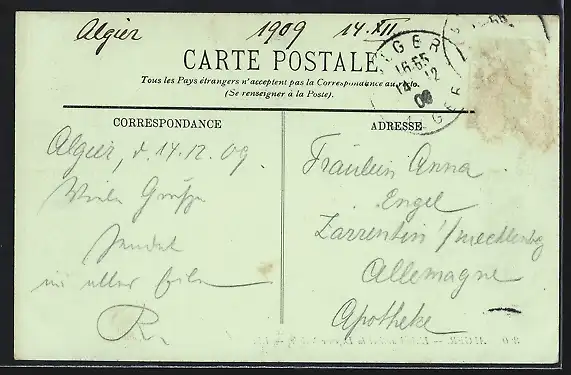 Algier 1909 14.XII
CARTE POSTALE
Tous les Pays étrangers n'acceptent pas la Correspondance au recto.
(Se renseigner à la Poste).
ALGER
16-55
14-12
09
ALGER
CORRESPONDANCE
ADRESSE
Algier, d. 14.12.09.
Viele Grüße
sendet
in aller Eile
R.
Fräulein Anna
Engel
Zarrentin /Mecklenbg
Allemagne
Apotheke
ALGER